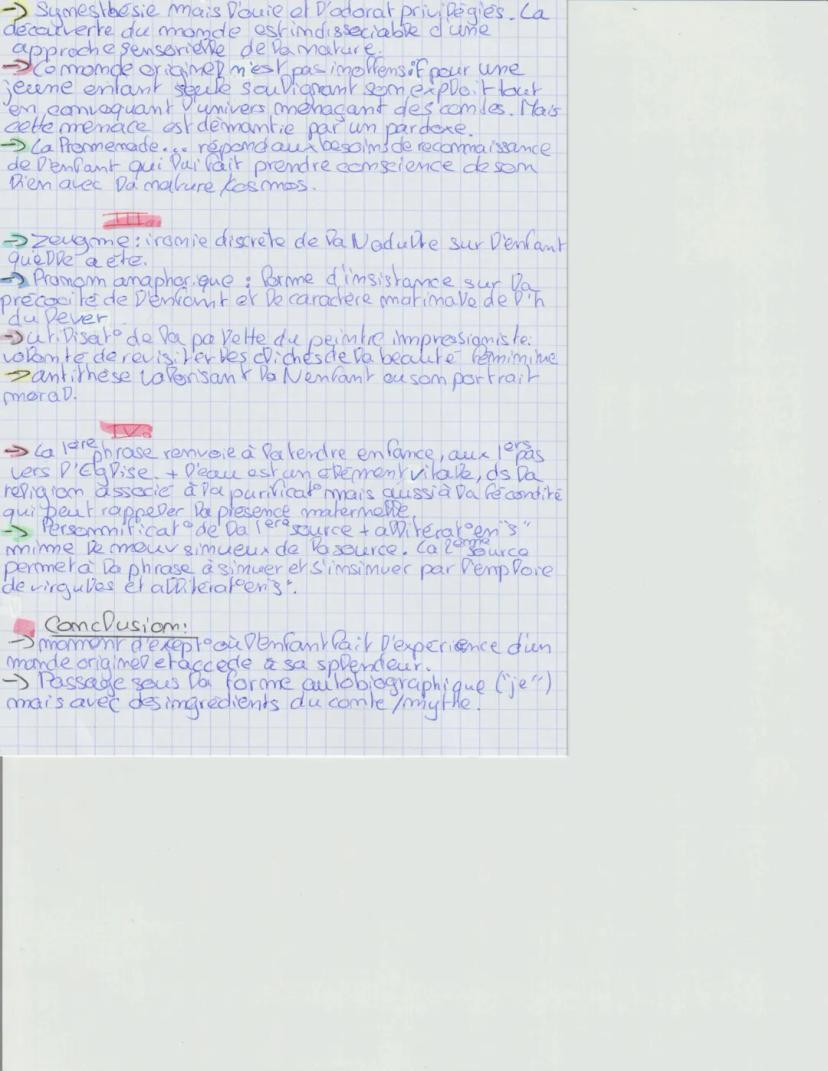 -> Synesthésie mais l'ouïe et l'odorat privilégiés. La
découverte du monde est indissociable d'une
approche sensorielle de la nature.
-> Ce monde originel n'est pas inoffensif pour une
jeune enfant seule soulignant son exploit tout
en convoquant l'univers menaçant des contes. Mais
cette menace est démantie par un pardoxe.
-> La Promenade... répond aux besoins de reconnaissance
de l'enfant qui lui fait prendre conscience de son
lien avec la nature kosmos.
III.
-> Zeugme : ironie discrète de la N adulte sur l'enfant
qu'elle a été.
-> Pronom anaphorique : forme d'insistance sur la
précocité de l'enfant et le caractère matinale de l'h
du lever
-> utilisat° de la palette du peintre impressionniste :
volonté de revisiter les clichés de la beauté féminine
-> antithèse valorisant la N enfant ou son portrait
moral.
IV.
-> La 1ere phrase renvoie à la tendre enfance, aux 1ers pas
vers l'Eglise. + l'eau est un élément vitale, ds la
religion associé à la purificat° mais aussi à la fécondité
qui peut rappeler la présence maternelle
-> Personnificat° de la 1ère source + allitérat° en "s"
mime le mouv sinueux de la source. La 2ème source
permet à la phrase à sinuer et s'insinuer par l'emploie
de virgules et allitérat° en "s".
Conclusion :
-> moment d'except° où l'enfant fait l'expérience d'un
monde originel et accède à sa splendeur.
-> Passage sous la forme autobiographique ("je")
mais avec des ingrédients du conte / mythe.